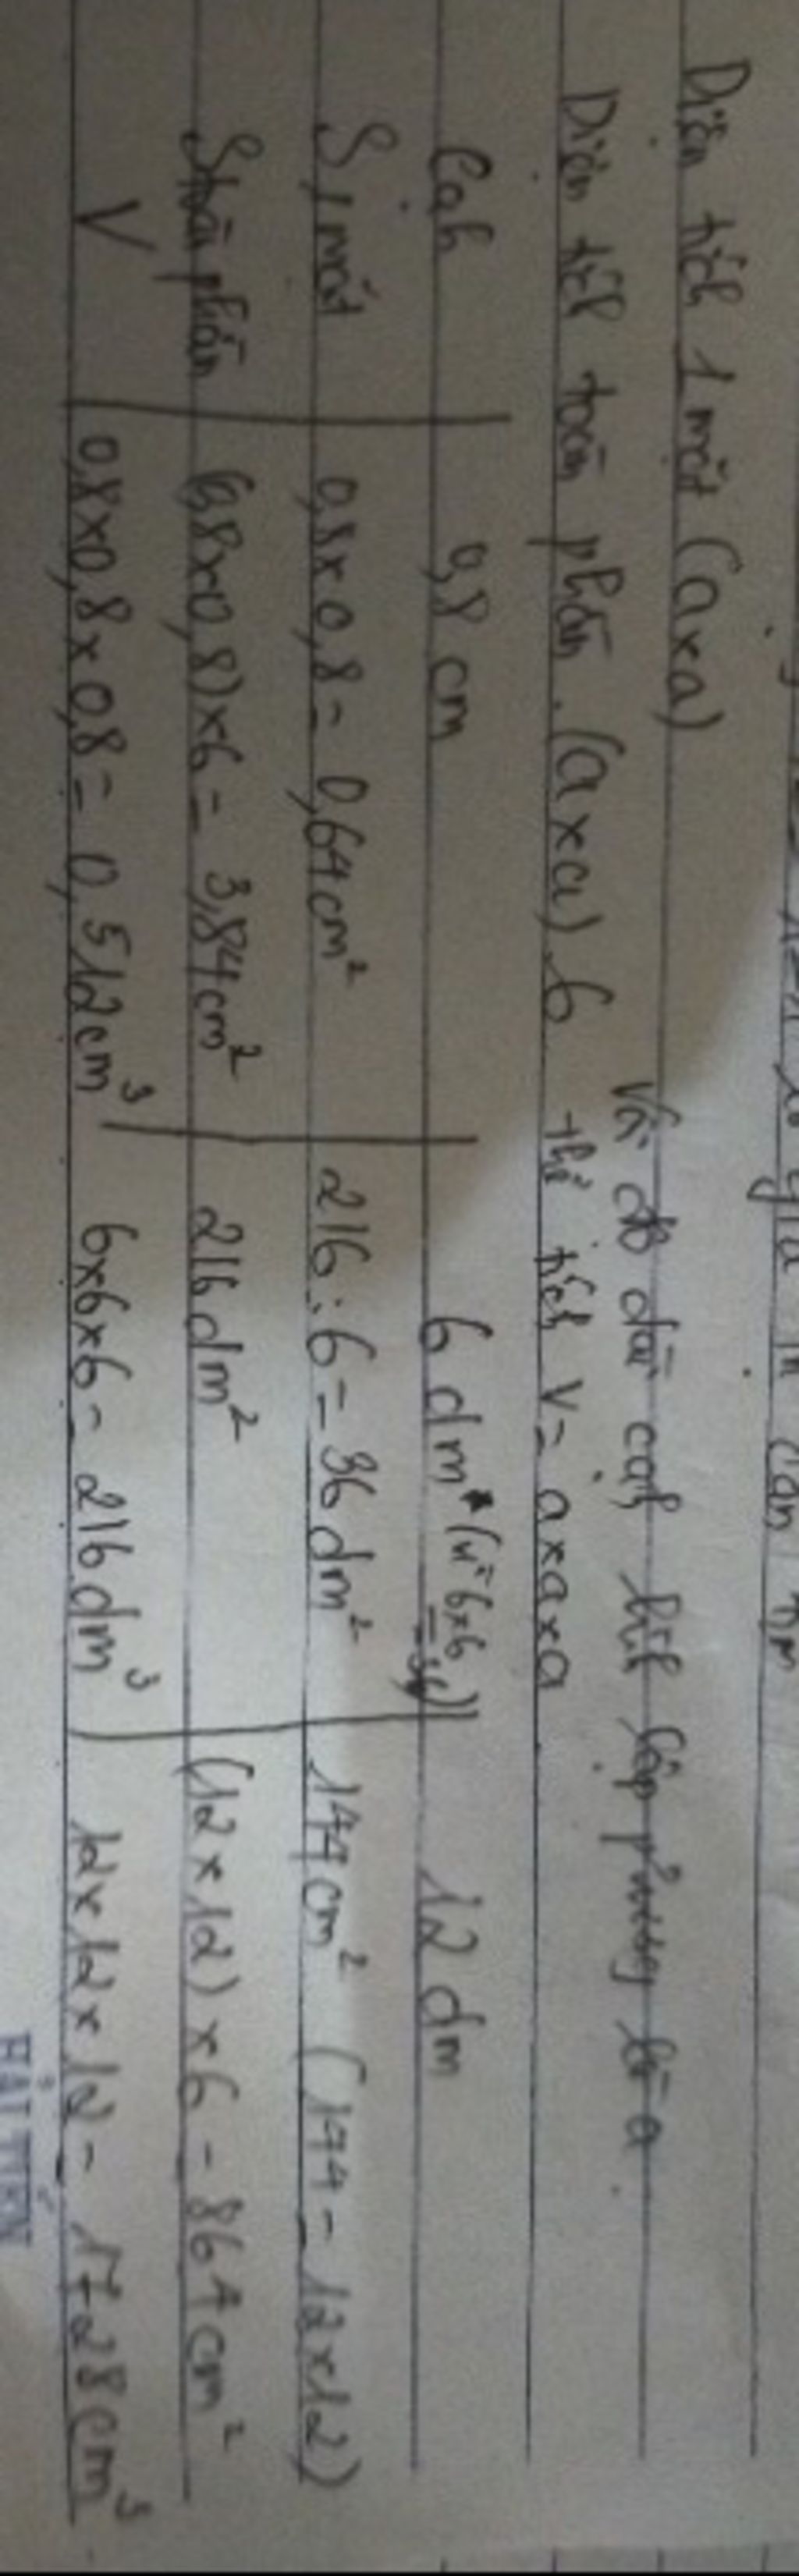 Diện tích 1 mặt (axa)
Với độ dài cạnh hình lập phương là a.
Diện tích toàn phần. (axa).6 thể tích V= axaxa
Cạnh 0,8 cm 6 dm (vì 6x6=36) 12 dm
S 1 mặt 0,8x0,8= 0,64cm² 216:6= 36dm² 144cm² (144=12x12)
S toàn phần (0,8x0,8)x6= 3,84cm² 216dm² (12x12)x6=864cm²
V 0,8x0,8x0,8= 0,512cm³ 6x6x6= 216dm³ 12x12x12= 1728cm³
HẢI TIẾN